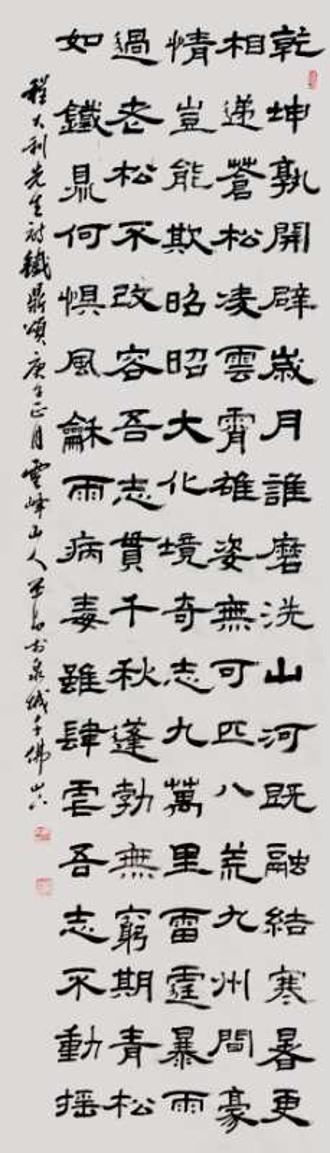 乾坤孰開辟歲月誰磨洗山河既融結寒暑更
相递蒼松凌雲霄雄姿無可匹八荒九州間豪
情豈能欺昭昭大化境奇志九萬里雷霆暴雨
過老松不改容吾志貫千秋蓬勃無窮期青松
如鐵鼎何惧風龢雨病毒雖肆虐吾志不動摇
程大利先生诗鐵鼎頌庚子正月雪峰山人書於泉城千佛山